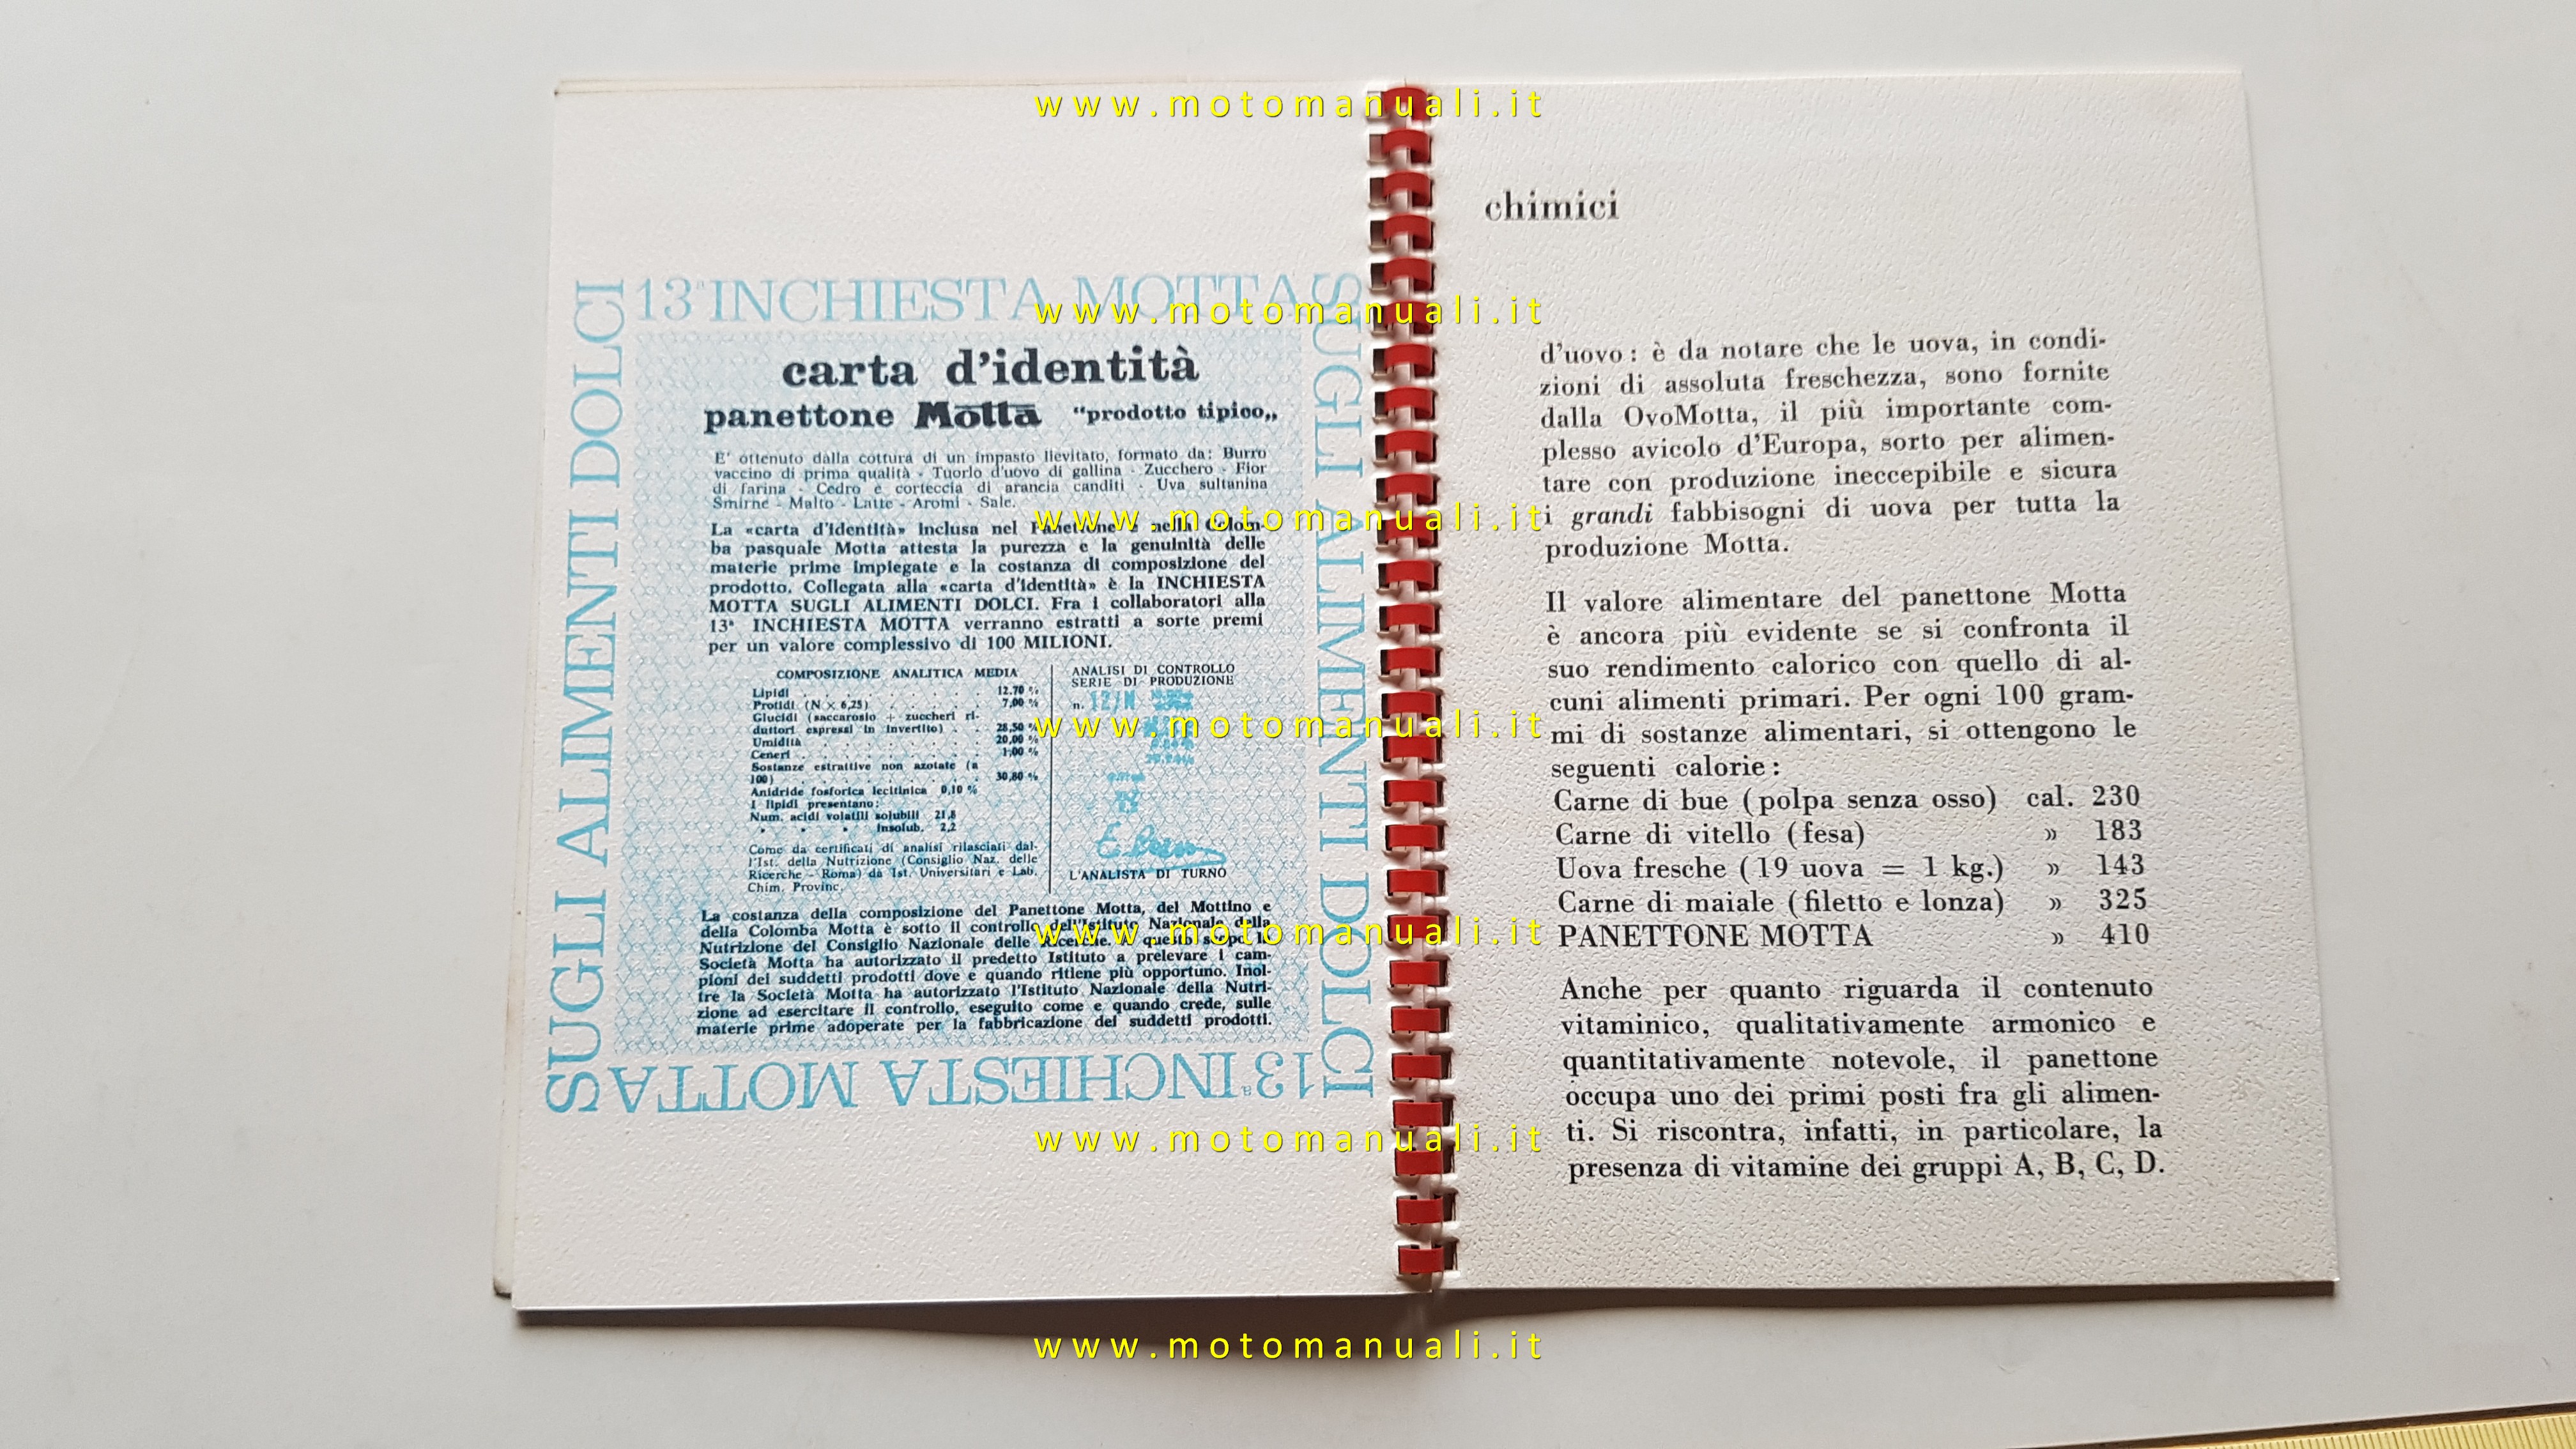 13ª INCHIESTA MOTTA
SUGLI ALIMENTI DOLCI
SUGLI ALIMENTI DOLCI
13ª INCHIESTA MOTTA
carta d'identità
panettone Motta "prodotto tipico„
E' ottenuto dalla cottura di un impasto lievitato, formato da: Burro
vaccino di prima qualità - Tuorlo d'uovo di gallina - Zucchero - Fior
di farina - Cedro e corteccia di arancia canditi - Uva sultanina
Smirne - Malto - Latte - Aromi - Sale.
La «carta d'identità» inclusa nel Panettone e nella Colom-
ba pasquale Motta attesta la purezza e la genuinità delle
materie prime impiegate e la costanza di composizione del
prodotto. Collegata alla «carta d'identità» è la INCHIESTA
MOTTA SUGLI ALIMENTI DOLCI. Fra i collaboratori alla
13ª INCHIESTA MOTTA verranno estratti a sorte premi
per un valore complessivo di 100 MILIONI.
COMPOSIZIONE ANALITICA MEDIA
Lipidi . . . . . . . . . . 12.70 %
Protidi (N × 6,25) . . . . . 7,00 %
Glucidi (saccarosio + zuccheri ri-
duttori espressi in invertito) . . 28,50 %
Umidità . . . . . . . . . 20,00 %
Ceneri . . . . . . . . . . 1,00 %
Sostanze estrattive non azotate (a
100) . . . . . . . . . . 30,80 %
Anidride fosforica lecitinica 0,10 %
I lipidi presentano:
Num. acidi volatili solubili 21,8
» » » insolub. 2,2
Come da certificati di analisi rilasciati dal-
l'Ist. della Nutrizione (Consiglio Naz. delle
Ricerche - Roma) da Ist. Universitari e Lab.
Chim. Provinc.
ANALISI DI CONTROLLO
SERIE DI PRODUZIONE
n. 12/N
L'ANALISTA DI TURNO
La costanza della composizione del Panettone Motta, del Mottino e
della Colomba Motta è sotto il controllo dell'Istituto Nazionale della
Nutrizione del Consiglio Nazionale delle Ricerche. A questo scopo la
Società Motta ha autorizzato il predetto Istituto a prelevare i cam-
pioni dei suddetti prodotti dove e quando ritiene più opportuno. Inol-
tre la Società Motta ha autorizzato l'Istituto Nazionale della Nutri-
zione ad esercitare il controllo, eseguito come e quando crede, sulle
materie prime adoperate per la fabbricazione dei suddetti prodotti.
chimici
d'uovo: è da notare che le uova, in condi-
zioni di assoluta freschezza, sono fornite
dalla OvoMotta, il più importante com-
plesso avicolo d'Europa, sorto per alimen-
tare con produzione ineccepibile e sicura
i grandi fabbisogni di uova per tutta la
produzione Motta.
Il valore alimentare del panettone Motta
è ancora più evidente se si confronta il
suo rendimento calorico con quello di al-
cuni alimenti primari. Per ogni 100 gram-
mi di sostanze alimentari, si ottengono le
seguenti calorie:
Carne di bue (polpa senza osso) cal. 230
Carne di vitello (fesa) » 183
Uova fresche (19 uova = 1 kg.) » 143
Carne di maiale (filetto e lonza) » 325
PANETTONE MOTTA » 410
Anche per quanto riguarda il contenuto
vitaminico, qualitativamente armonico e
quantitativamente notevole, il panettone
occupa uno dei primi posti fra gli alimen-
ti. Si riscontra, infatti, in particolare, la
presenza di vitamine dei gruppi A, B, C, D.
www.motomanuali.it
www.motomanuali.it
www.motomanuali.it
www.motomanuali.it
www.motomanuali.it
www.motomanuali.it
www.motomanuali.it